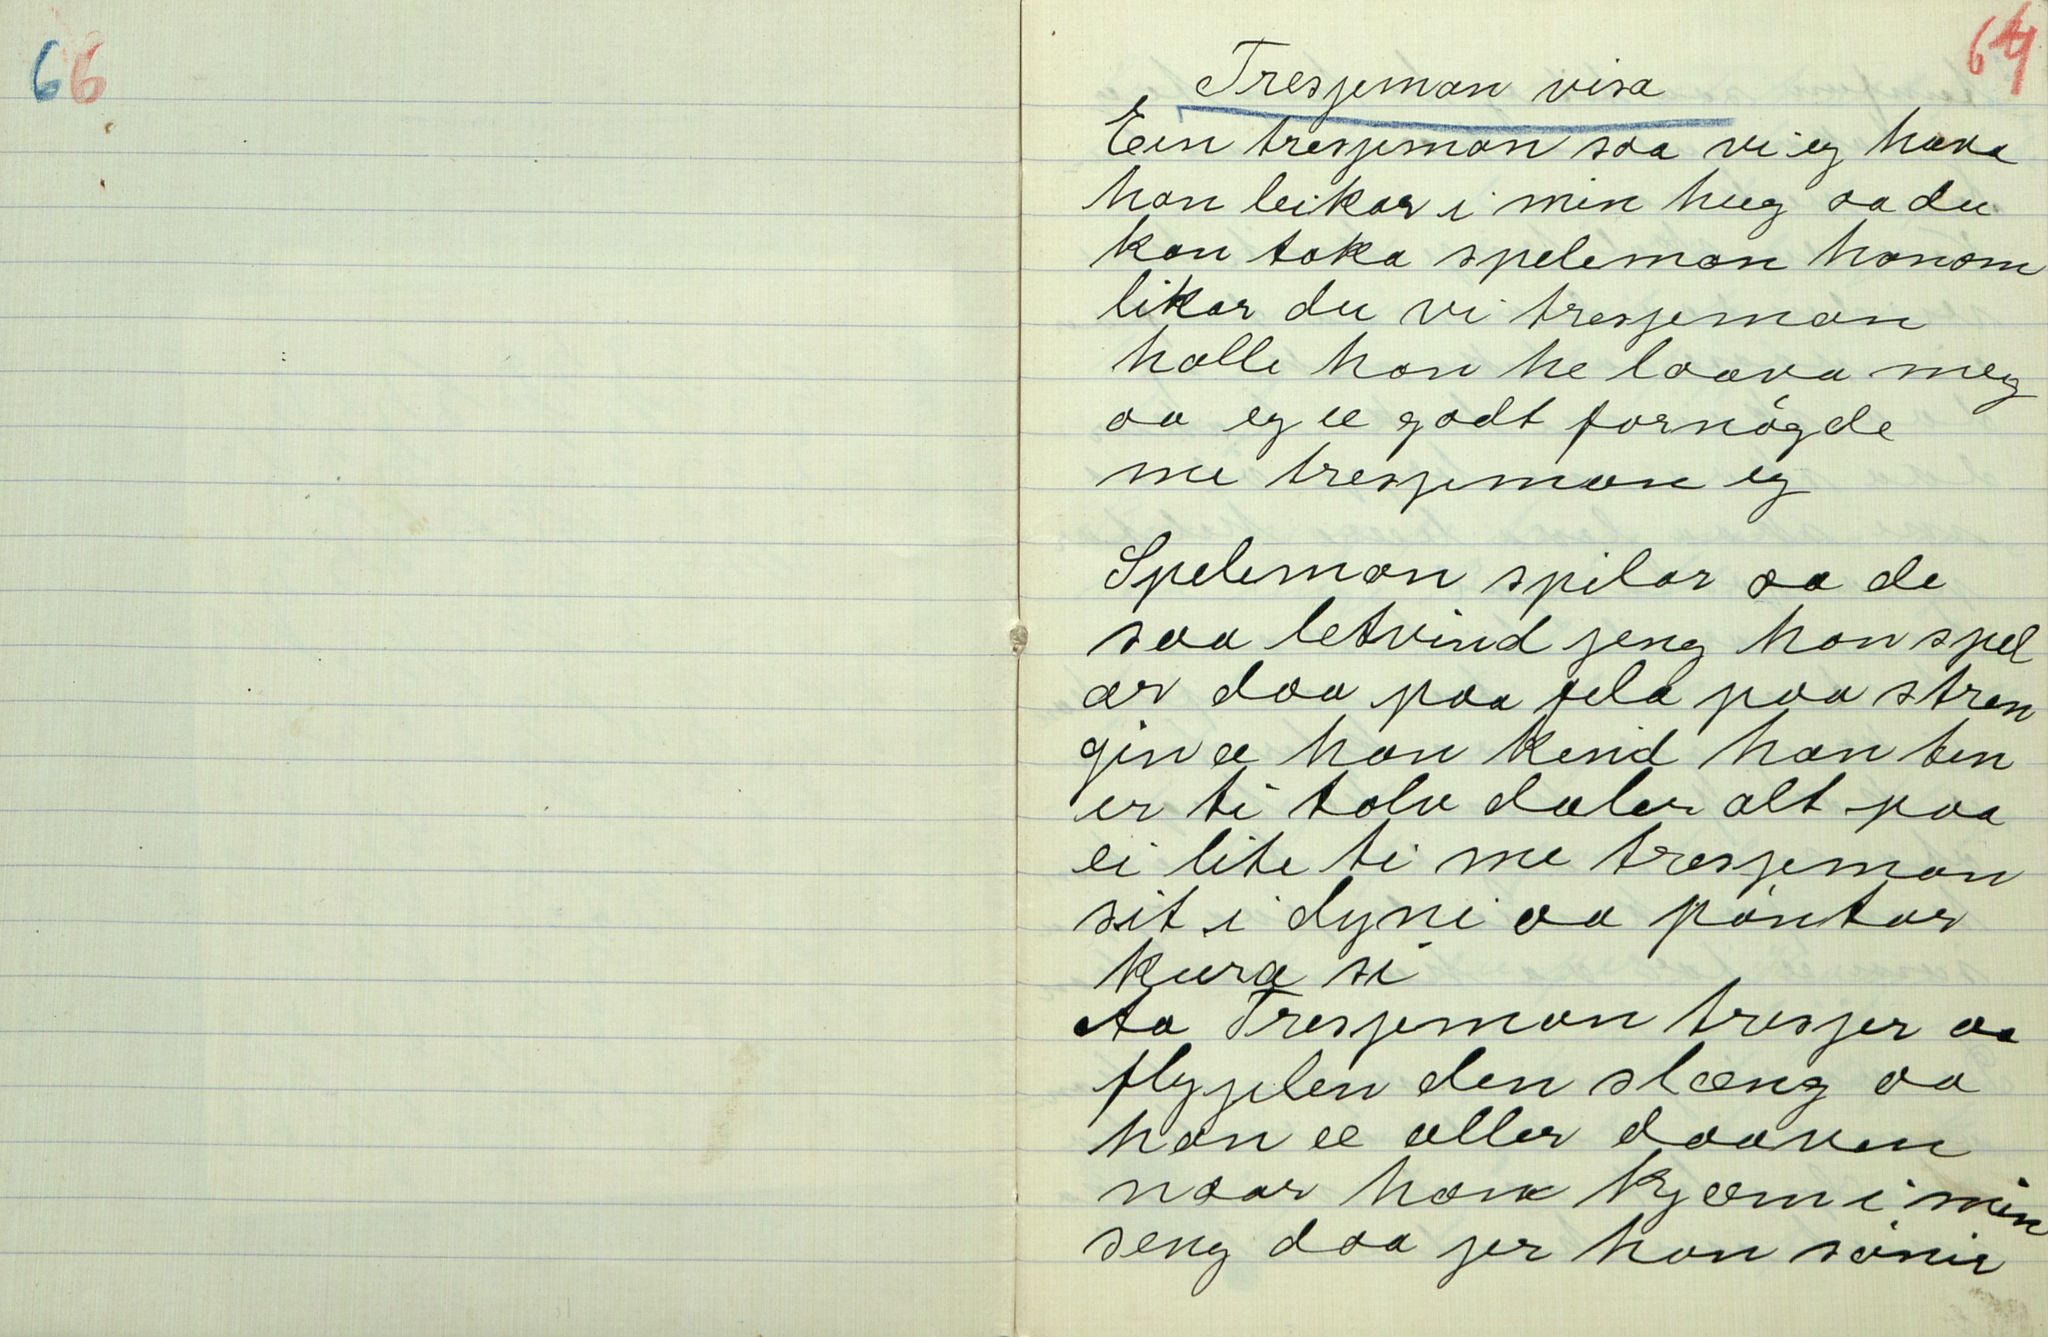 66
64
Tresjeman visa
Ein tresjeman saa vi eg hava
han leikar i min hug aa du
kan taka speleman honom
likar du vi tresjeman
halle han he laava meg
aa eg e godt fornögde
me tresjeman eg
Speleman spilar aa de
saa letvind jeng han spel
ar daa paa fela paa stren
gin e han kend han ten
er ti tolv daler alt paa
ei lite ti me tresjeman
sit i dyni aa pöntar
kura si
Aa Tresjeman tresjer aa
flygjelen den slæng aa
han e aller daaven
naar han kjæm i min
seng daa jer han sönie